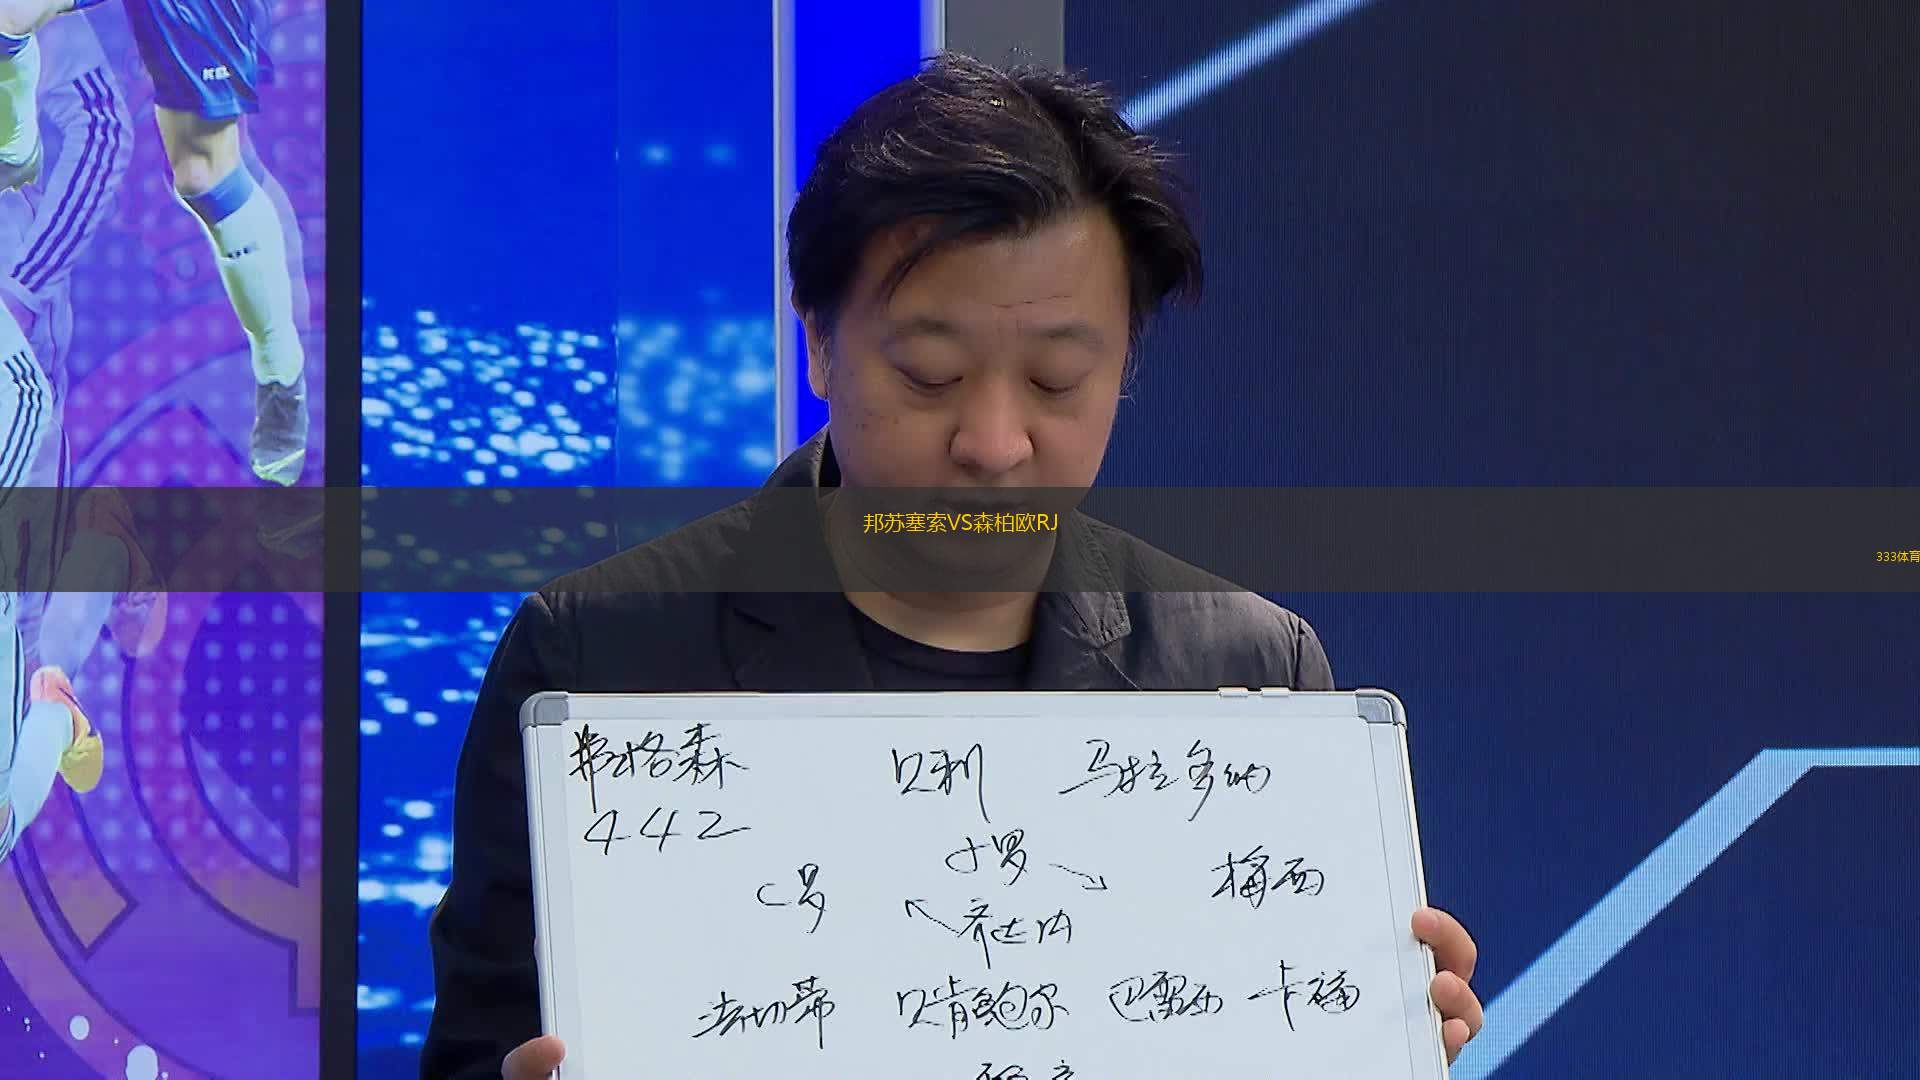 邦苏塞索VS森柏欧RJ
333体育
弗格森 贝利 马拉多纳
442
小罗
C罗 梅西
齐达内
法切蒂 贝肯鲍尔 巴雷西 卡福